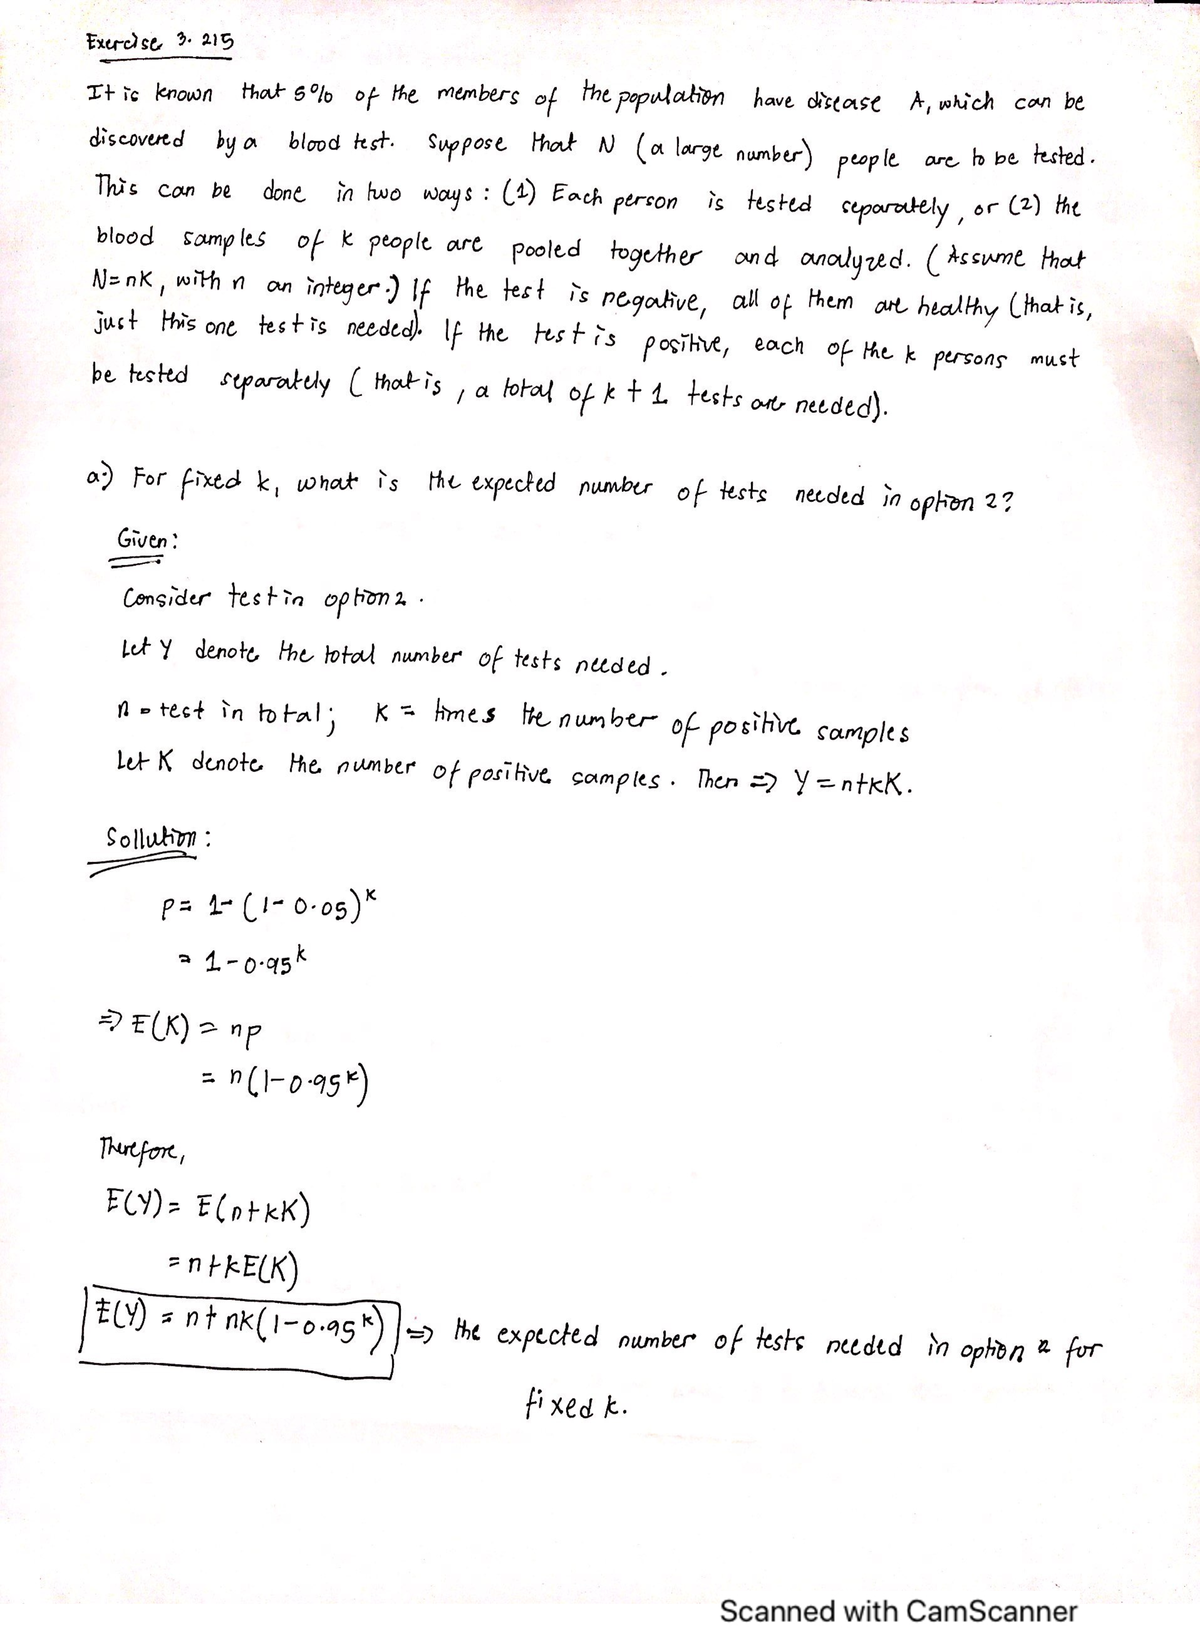 Exercise 3.215
It is known that 5% of the members of the population have disease A, which can be
discovered by a blood test. Suppose that N (a large number) people are to be tested.
This can be done in two ways : (1) Each person is tested separately, or (2) the
blood samples of k people are pooled together and analyzed. (Assume that
N=nK, with n an integer.) If the test is negative, all of them are healthy (that is,
just this one test is needed). If the test is positive, each of the k persons must
be tested separately (that is, a total of k + 1 tests are needed).
a.) For fixed k, what is the expected number of tests needed in option 2?
Given:
Consider test in option 2.
Let Y denote the total number of tests needed.
n = test in total; K = times the number of positive samples
Let K denote the number of positive samples. Then => Y = n+kK.
Sollution:
P = 1-(1-0.05)^k
= 1-0.95^k
=> E(K) = np
= n(1-0.95^k)
Therefore,
E(Y) = E(n+kK)
= n+kE(K)
E(Y) = n+nK(1-0.95^k) => the expected number of tests needed in option 2 for
fixed k.
Scanned with CamScanner